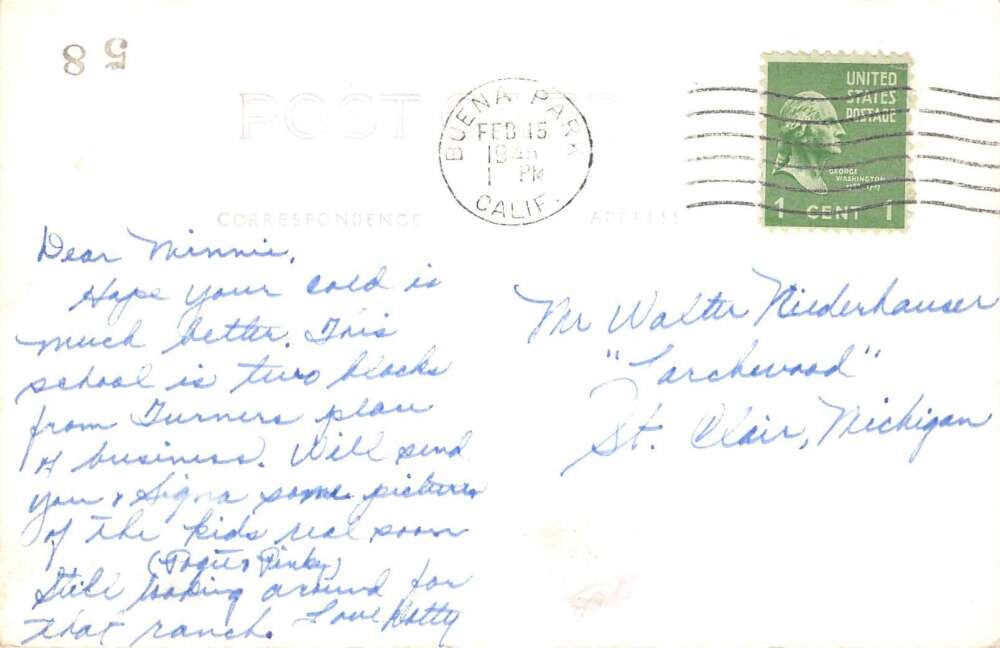 58
POST
CORRESPONDENCE
ADDRESS
BUENA PARK
FEB 15
1 PM
CALIF.
UNITED
STATES
POSTAGE
GEORGE
WASHINGTON
1 CENT 1
Dear Minnie,
Hope your cold is
much better. This
school is two blocks
from Turners place
of business. Will send
you & Signa some pictures
of the kids real soon
Pinky)
Still looking around for
that ranch. Love
Mr Walter Niederhauser
"Larchwood"
St. Clair, Michigan